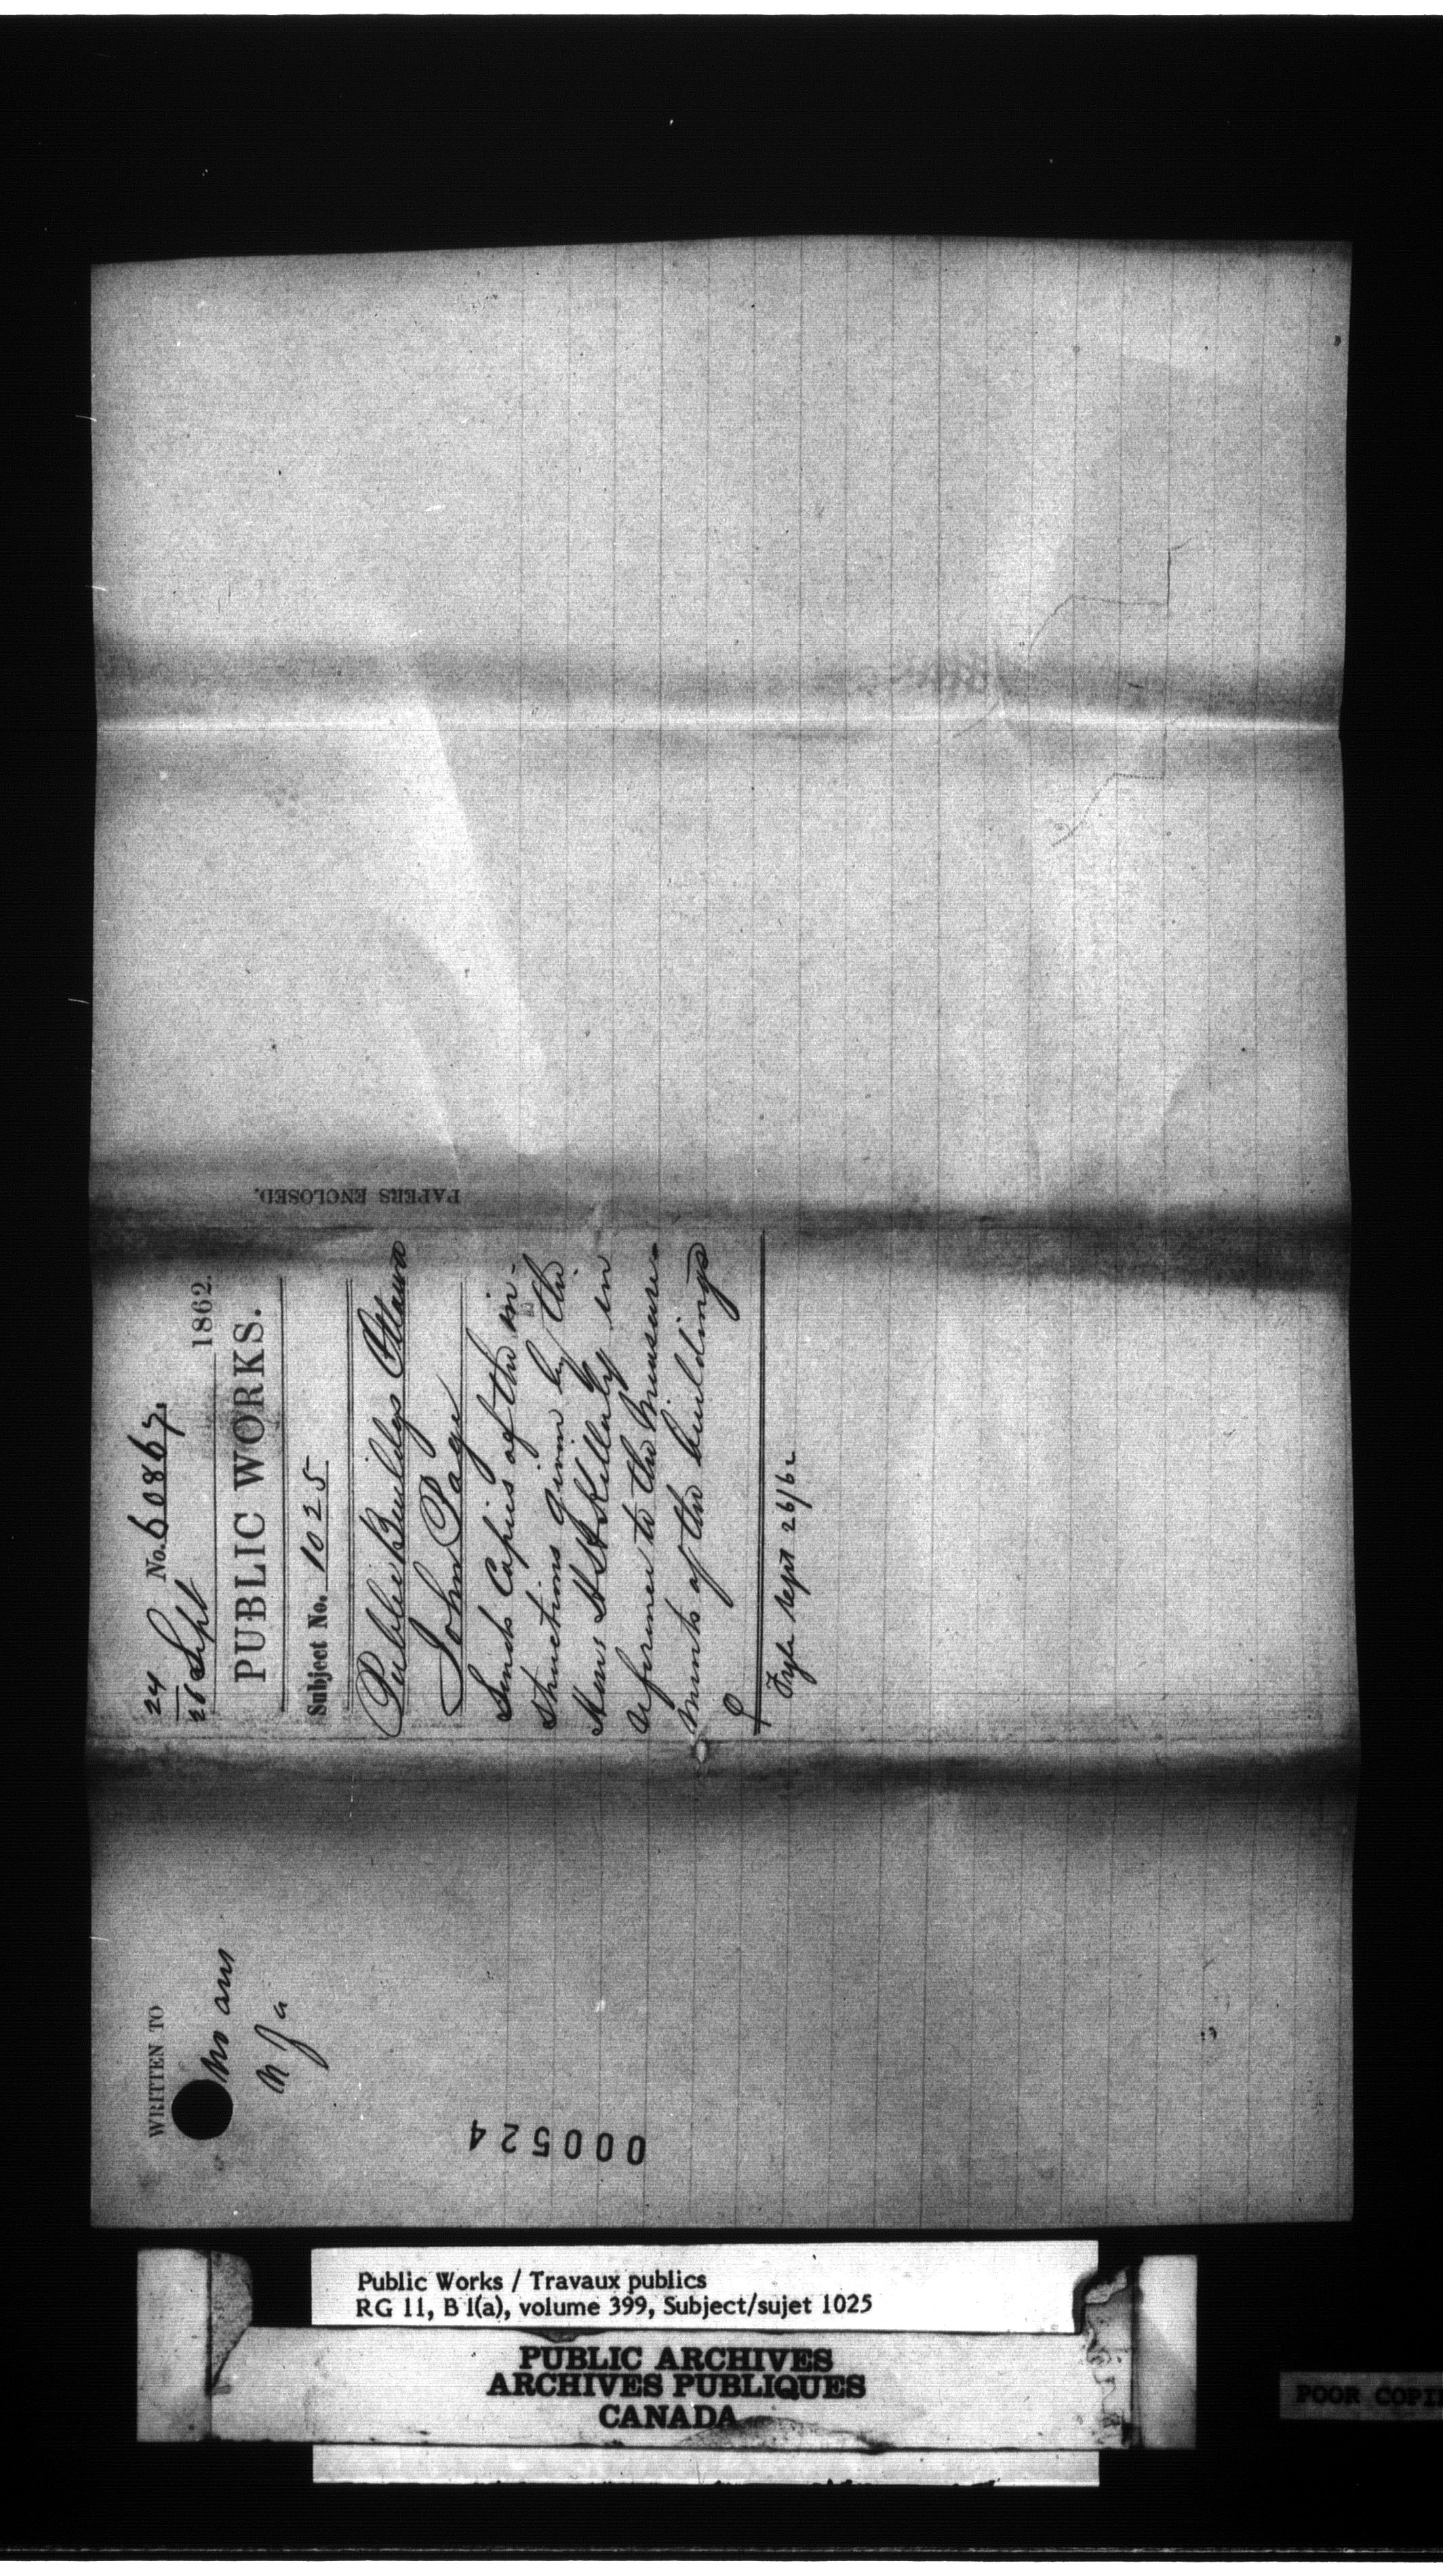 24
26 Sept No. 60867.
1862.
PUBLIC WORKS.
Subject No. 1025
Public Buildgs Ottawa
John Page
Sends Copies of the in-
structions given by the
Hon. H H Killaly in
reference to the measure-
ments of the buildings
Fyle Sept 26/62
PAPERS ENCLOSED.
WRITTEN TO
No ans
000524
Public Works / Travaux publics
RG 11, B 1(a), volume 399, Subject/sujet 1025
PUBLIC ARCHIVES
ARCHIVES PUBLIQUES
CANADA
POOR COPI